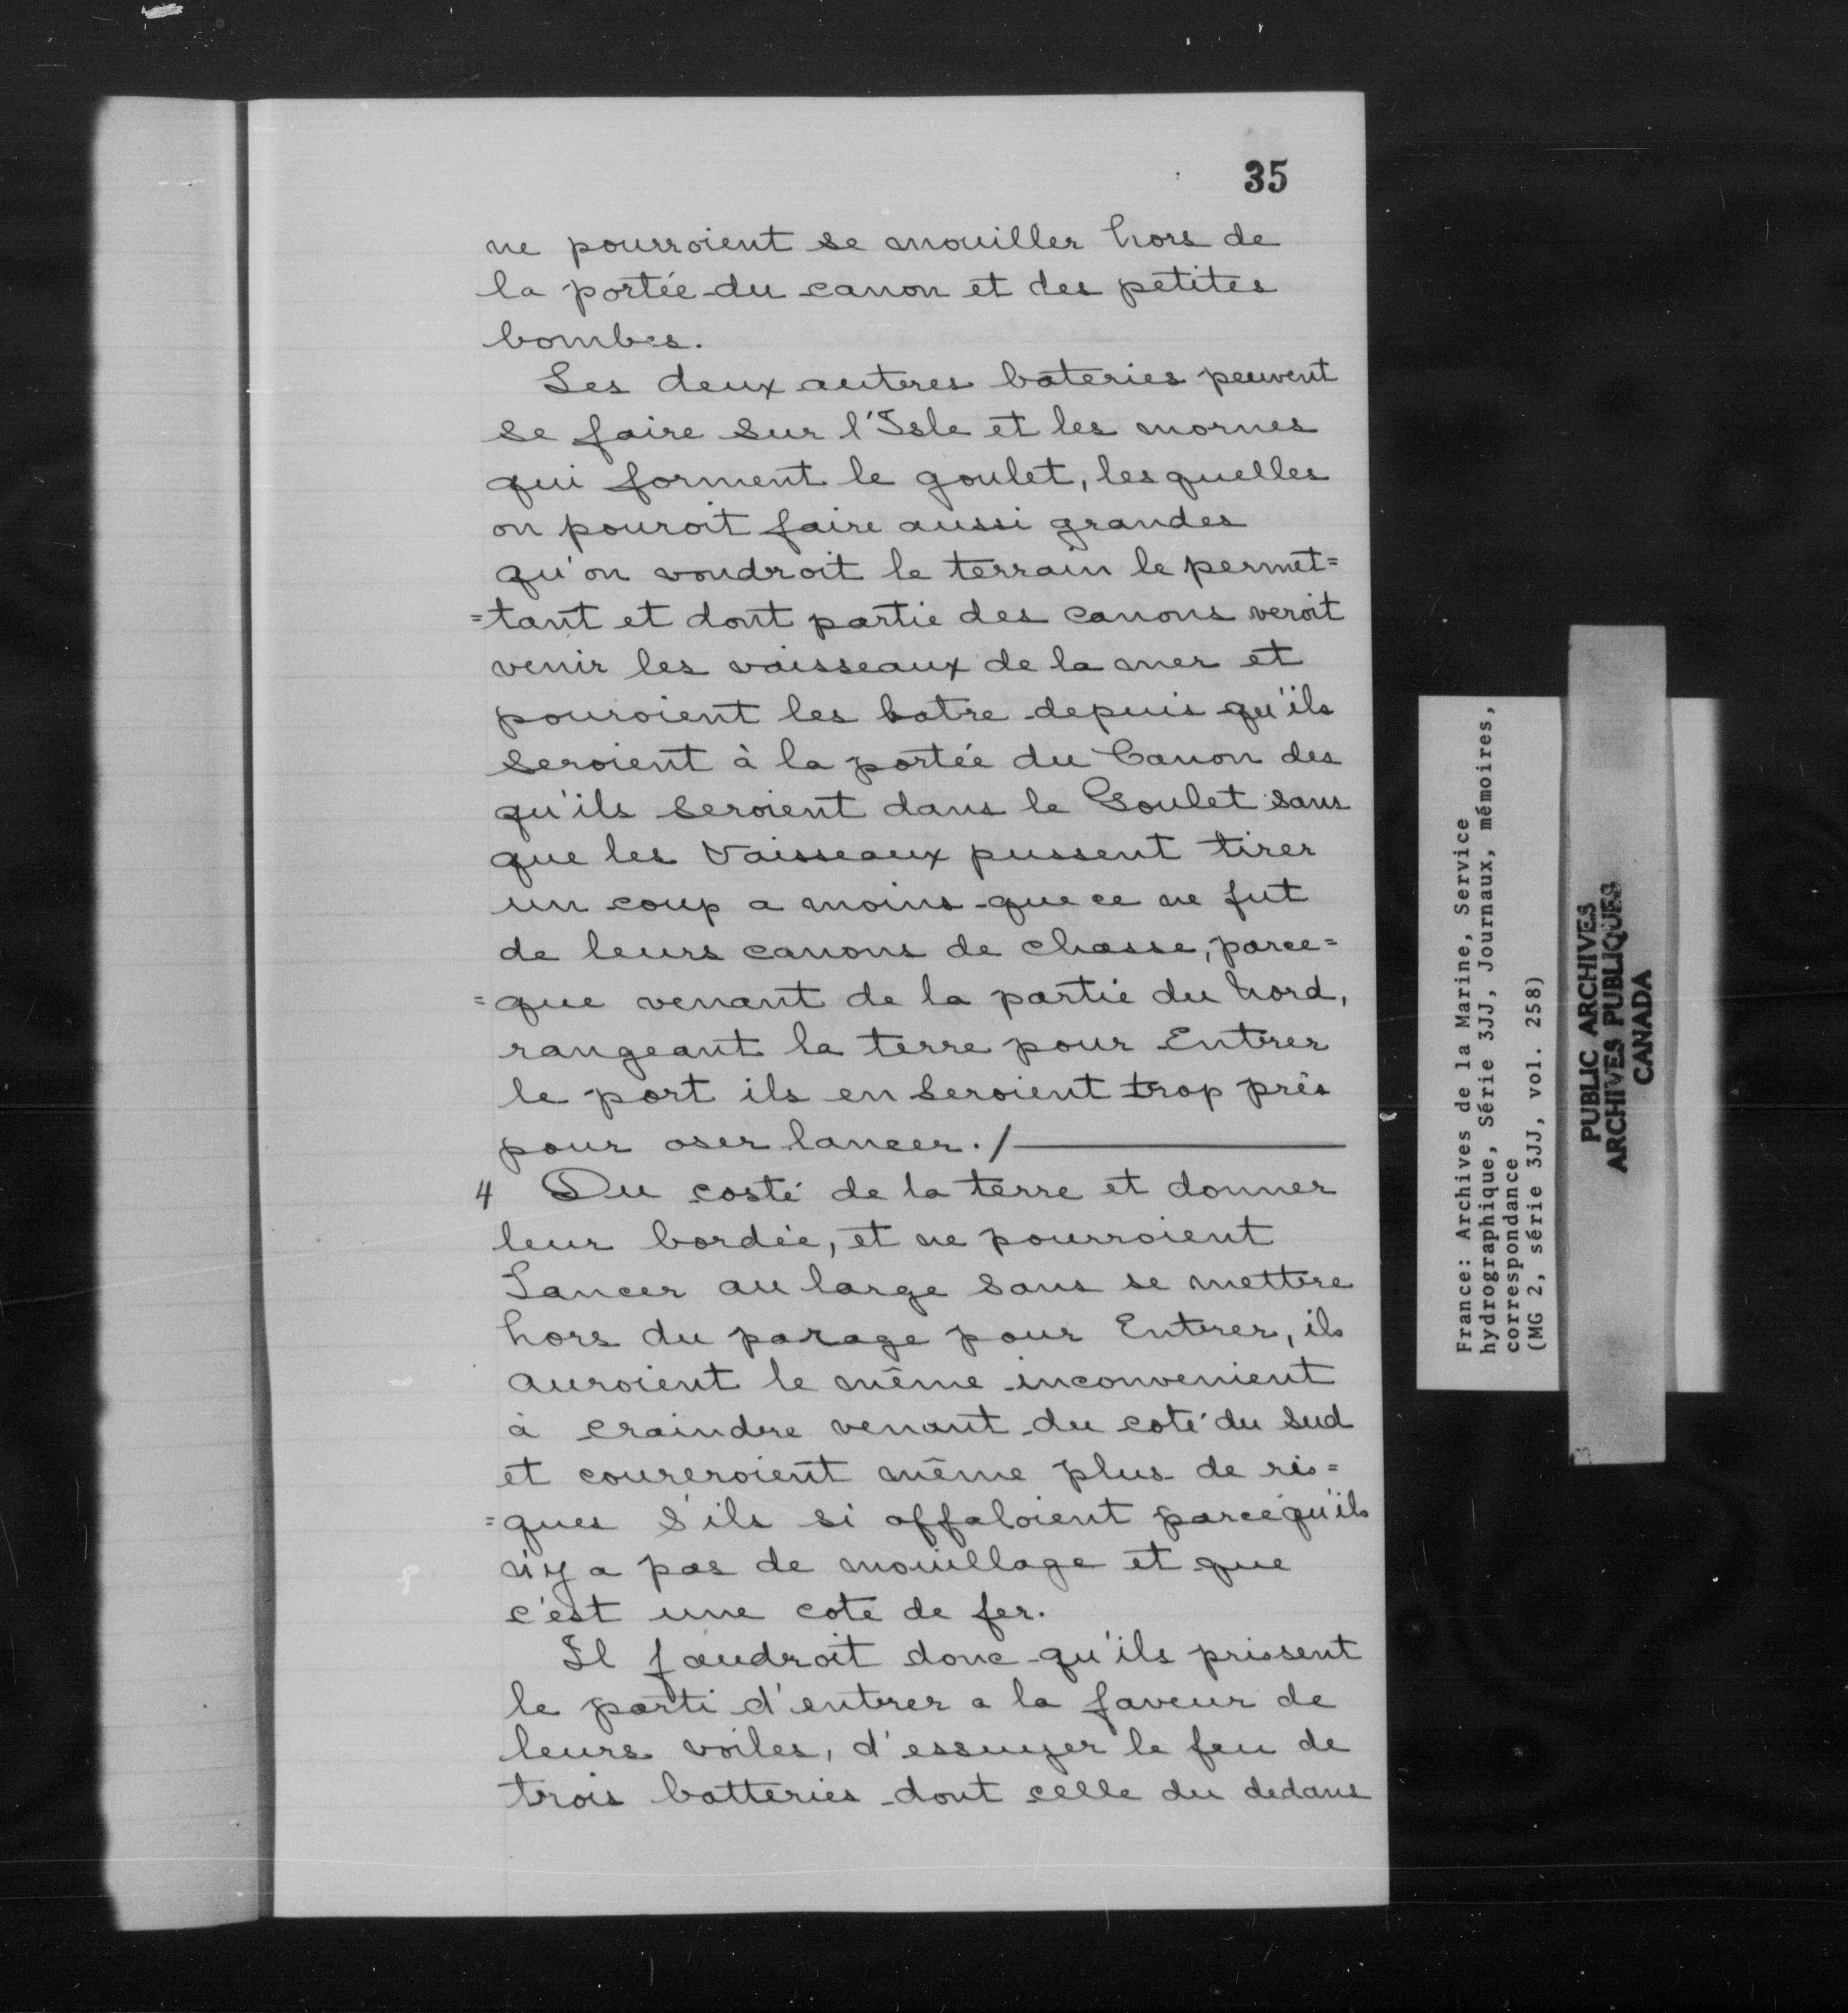 35
ne pourroient se mouiller hors de
la portée du canon et des petites
bombes.
Les deux autres bateries peuvent
se faire sur l'Isle et les mornes
qui forment le goulet, lesquelles
on pouroit faire aussi grandes
qu'on voudroit le terrain le permet=
=tant et dont partie des canons veroit
venir les vaisseaux de la mer et
pouroient les batre depuis qu'ils
seroient à la portée du Canon des
qu'ils seroient dans le Goulet sans
que les Vaisseaux pussent tirer
un coup a moins que ce ne fut
de leurs canons de chasse, parce=
=que venant de la partie du nord,
rangeant la terre pour Entrer
le port ils en seroient trop près
pour oser lancer./
4 Du costé de la terre et donner
leur bordée, et ne pourroient
Lancer au large sans se mettre
hors du parage pour Entrer, ils
auroient le même inconvenient
à craindre venant du coté du sud
et coureroient même plus de ris=
=ques s'ils si affaloient parcequ'ils
n'y a pas de mouillage et que
c'est une cote de fer.
Il faudroit donc qu'ils prissent
le parti d'entrer a la faveur de
leurs voiles, d'essuyer le feu de
trois batteries dont celle du dedans
France: Archives de la Marine, Service
hydrographique, Série 3JJ, Journaux, mémoires,
correspondance
(MG 2, série 3JJ, vol. 258)
PUBLIC ARCHIVES
ARCHIVES PUBLIQUES
CANADA